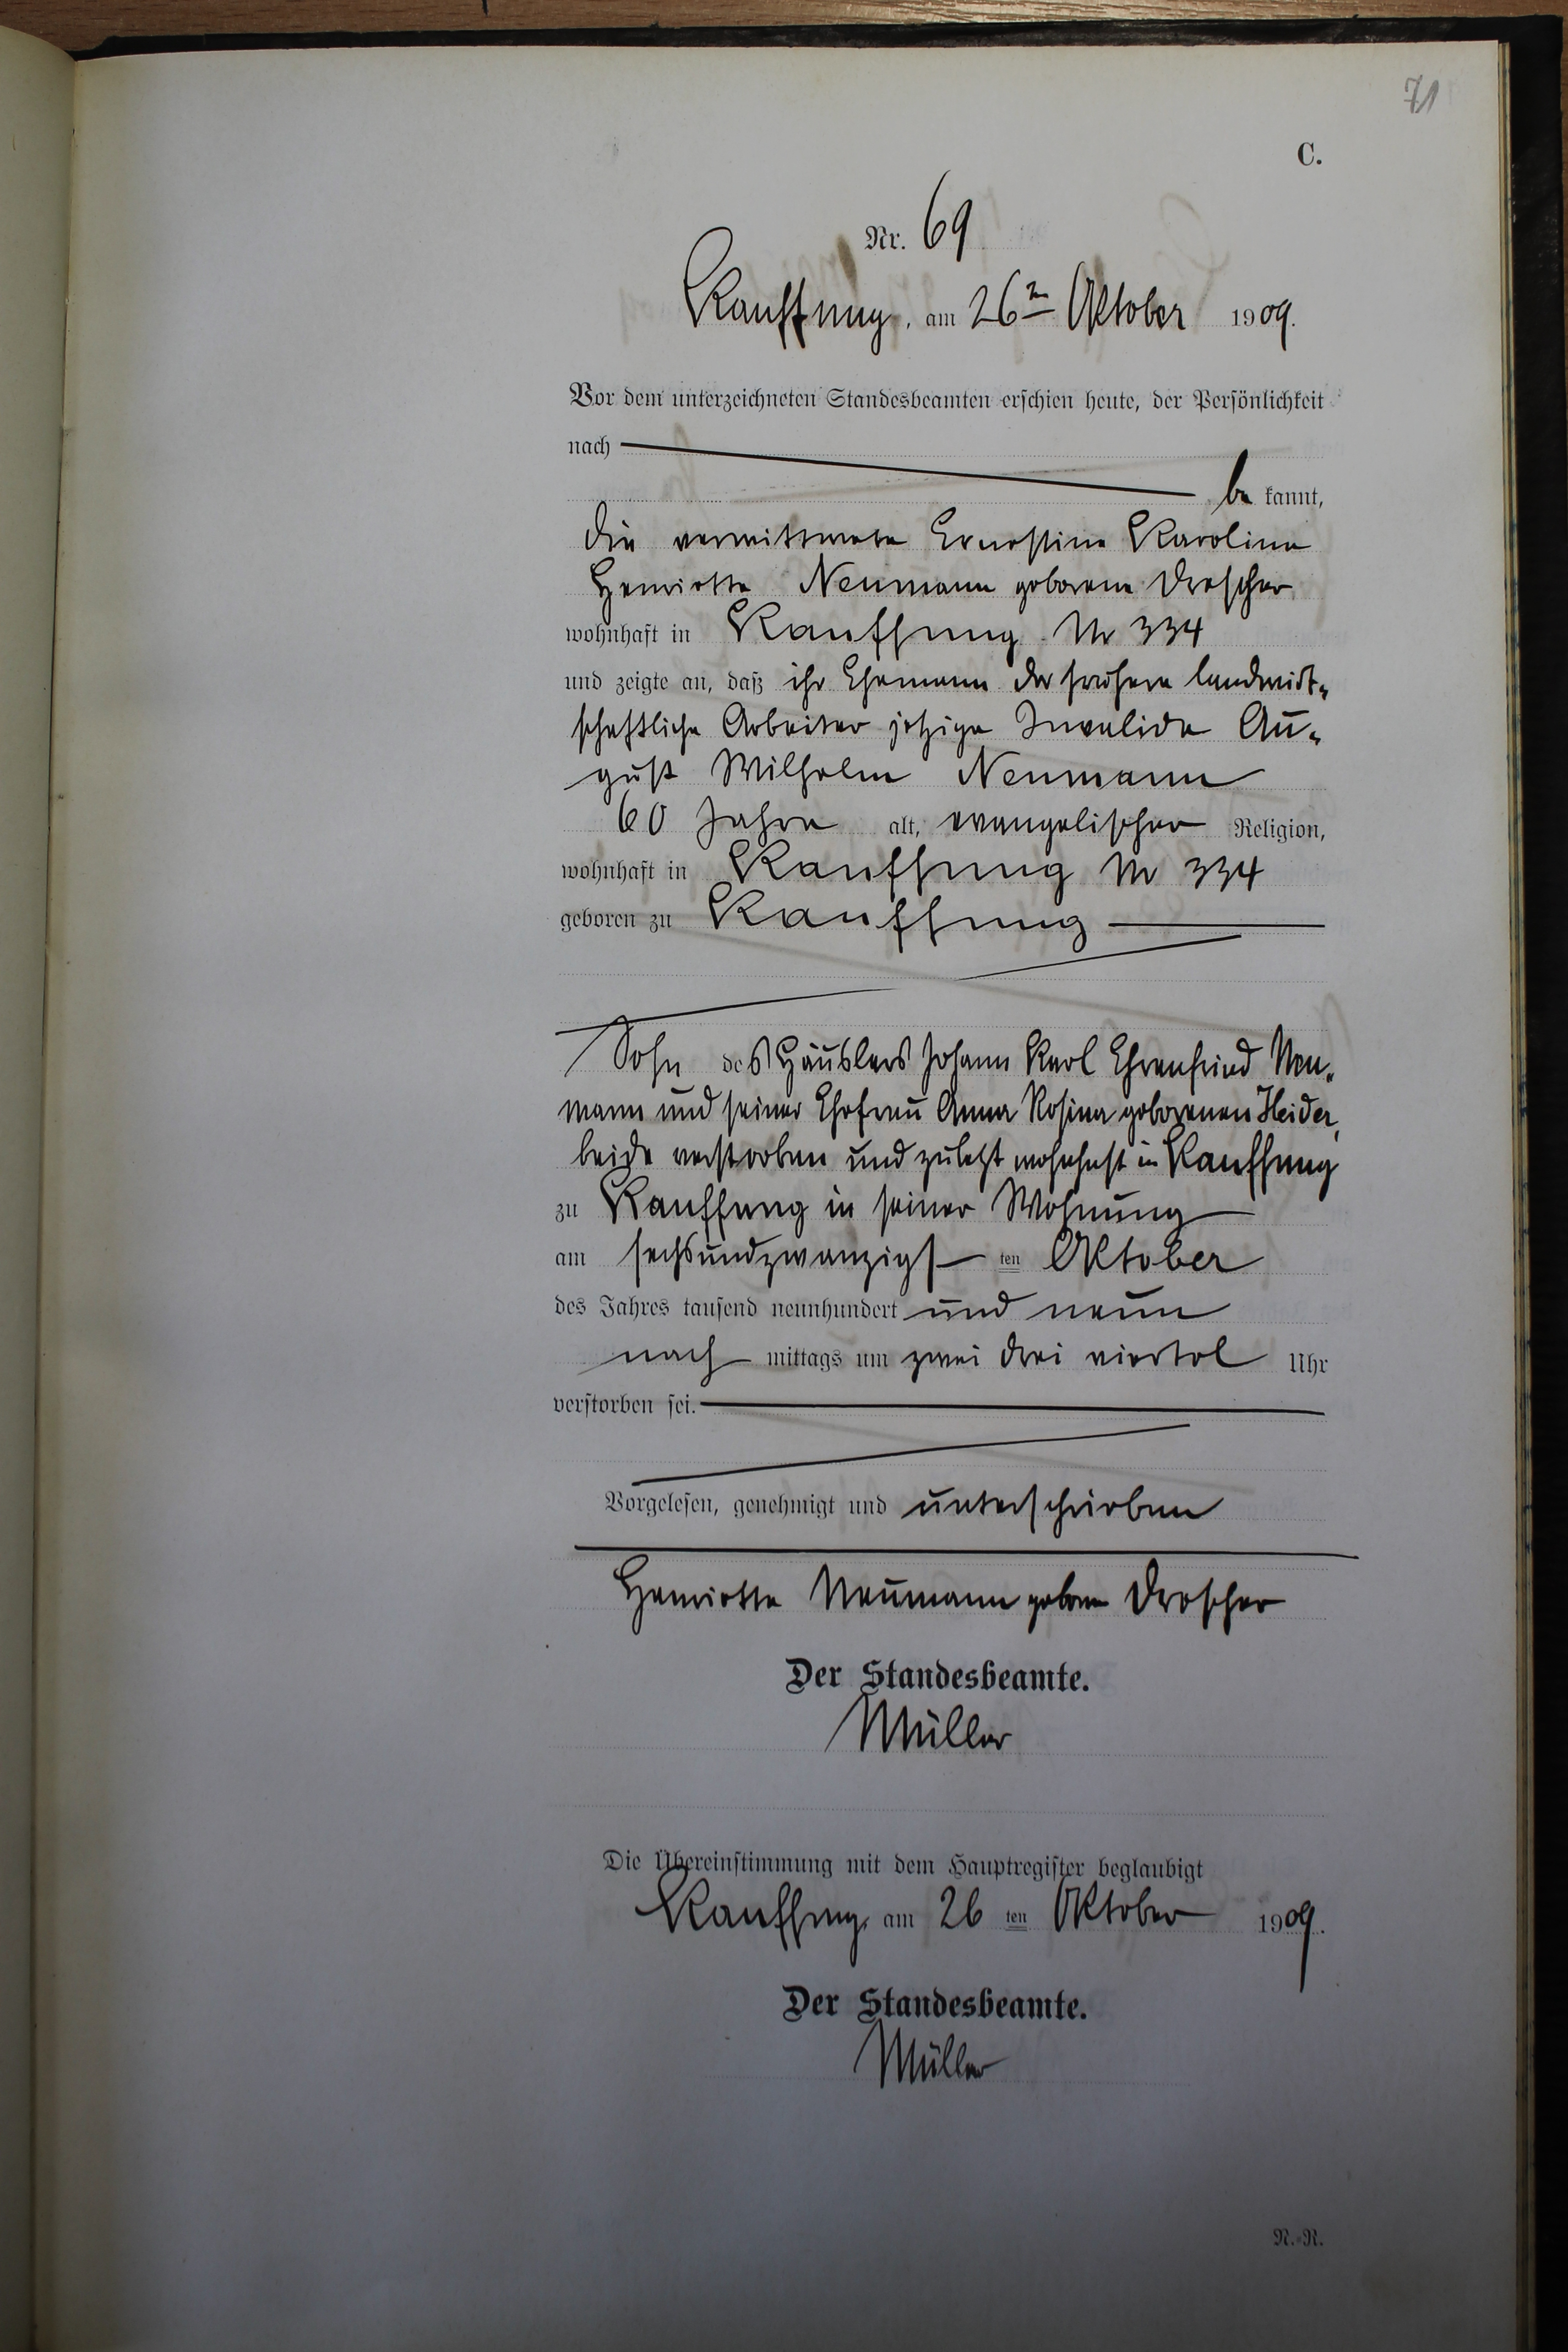 71
C.
Nr. 69
Kauffung, am 26ten Oktober 1909.
Vor dem unterzeichneten Standesbeamten erschien heute, der Persönlichkeit
nach
be kannt,
die verwittwete Ernestine Karoline
Henriette Neumann geborene Drescher
wohnhaft in Kauffung Nr 334
und zeigte an, daß ihr Ehemann der frühere landwirt-
schaftliche Arbeiter jetzige Invalide Au-
gust Wilhelm Neumann
60 Jahre alt, evangelischer Religion,
wohnhaft in Kauffung Nr 334
geboren zu Kauffung
Sohn des Häuslers Johann Karl Ehrenfried Neu-
mann und seiner Ehefrau Anna Rosina geborenen Heider,
beide verstorben und zuletzt wohnhaft in Kauffung
zu Kauffung in seiner Wohnung
am sechsundzwanzigsten Oktober
des Jahres tausend neunhundert und neun
nach mittags um zwei drei viertel Uhr
verstorben sei.
Vorgelesen, genehmigt und unterschrieben
Henriette Neumann geborne Drescher
Der Standesbeamte.
Müller
Die Übereinstimmung mit dem Hauptregister beglaubigt
Kauffung, am 26 ten Oktober 1909.
Der Standesbeamte.
Müller
N.-R.